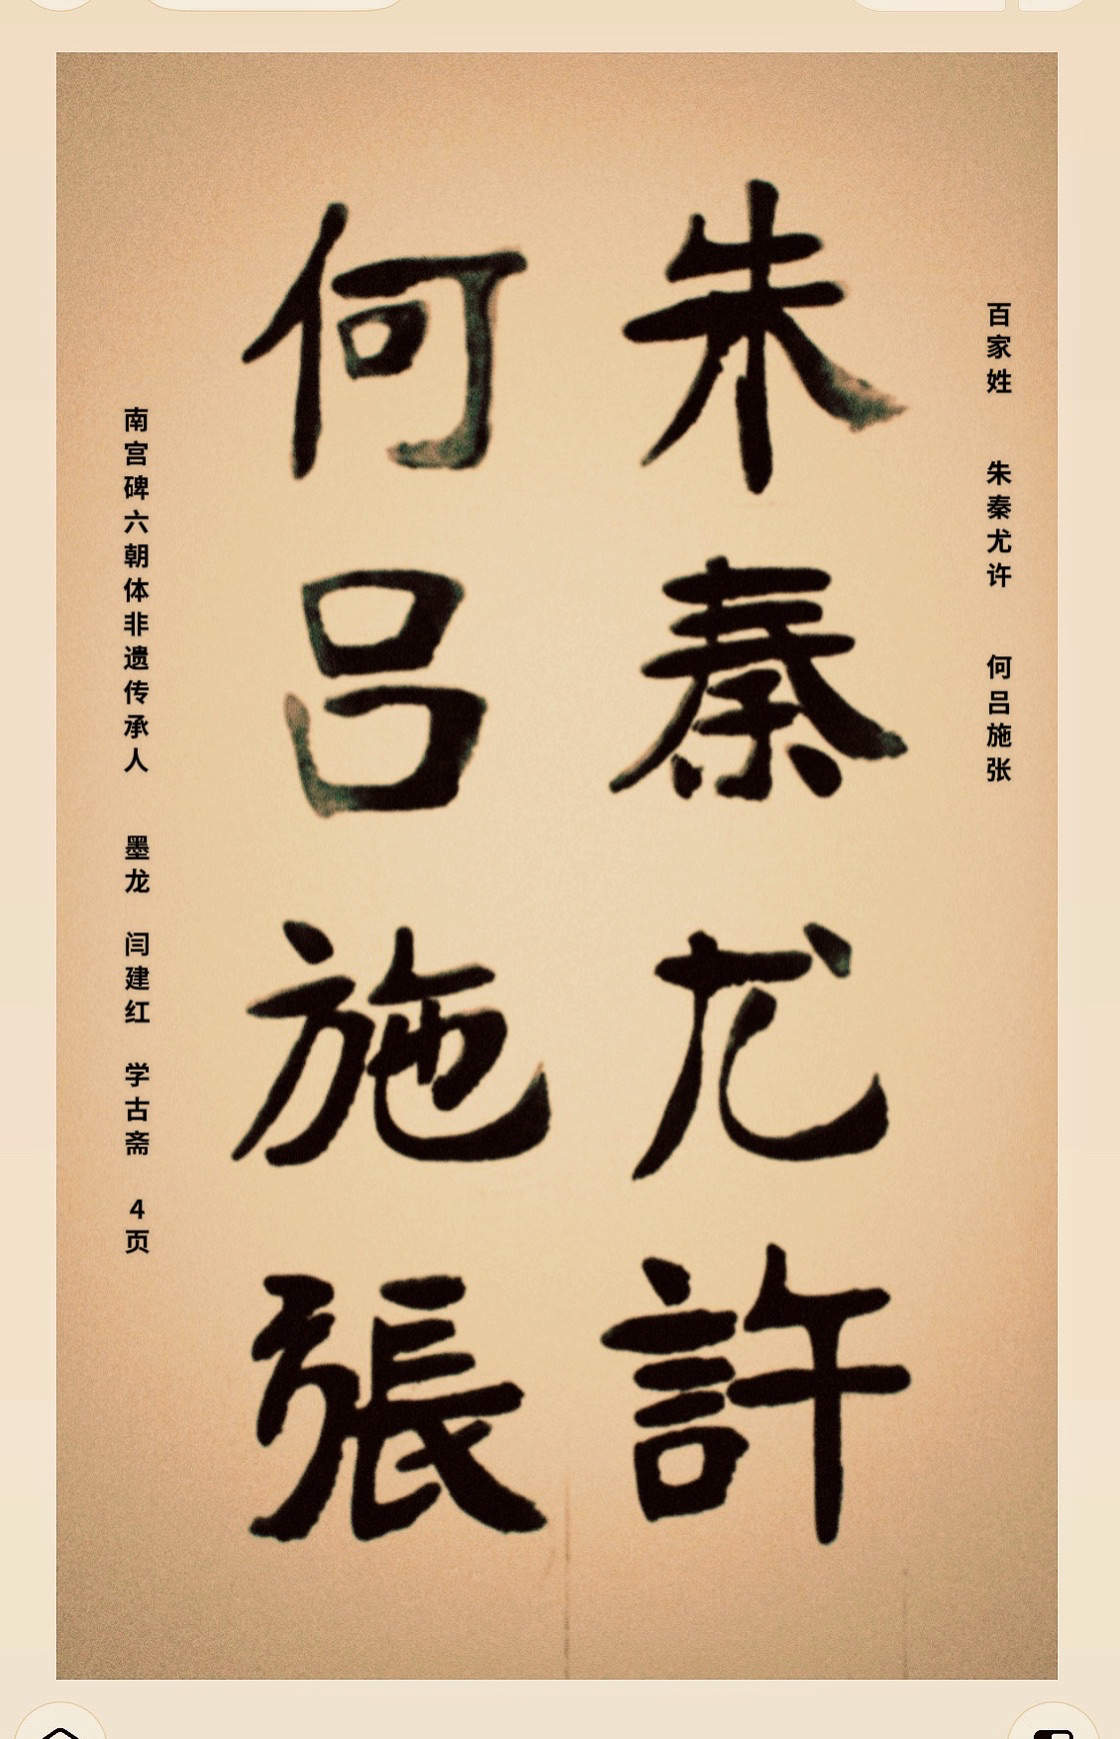 百家姓 朱秦尤许 何吕施张
朱秦尤許
何吕施張
南宫碑六朝体非遗传承人 墨龙 闫建红 学古斋 4页